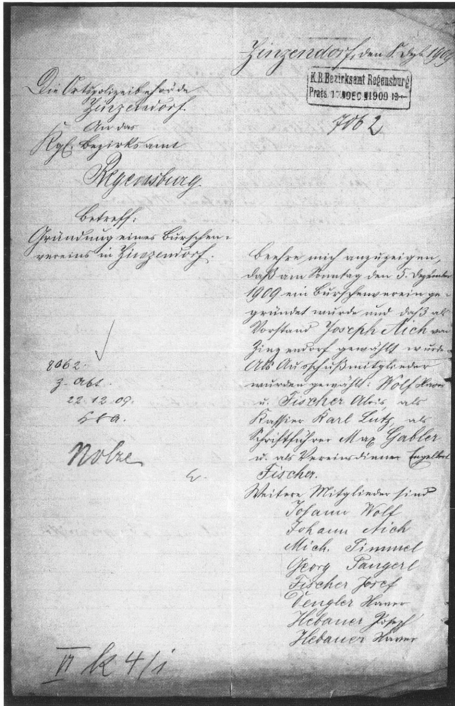 Zinzendorf, den 8. Dezb. 1909
K.B. Bezirksamt Regensburg
Präs. 10 DEC 1909
7062
Die Ortspolizeibehörde
Zinzendorf.
An das
Kgl. Bezirksamt
Regensburg.
Betreff:
Gründung eines Burschen-
vereins in Zinzendorf.
Beehre mich anzuzeigen,
daß am Sonntag den 5. Dezember
1909 ein Burschenverein ge-
gründet wurde und daß als
Vorstand Joseph Aich von
Zinzendorf gewählt wurde.
Als Ausschußmitglieder
wurden gewählt: Wolf Xaver
u. Fischer Alois als
Kassier Karl Lutz als
Schriftführer Max Gabler
u. als Vereinsdiener Engelbert
Fischer.
Weitere Mitglieder sind
Johann Wolf
Johann Aich
Mich. Timmel
Georg Tangerl
Fischer Josef
Dengler Xaver
Hebauer Joseph
Hebauer Xaver
8062
z. Abt.
22.12.09.